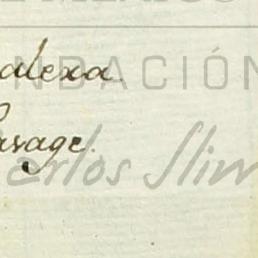 alexa.
FUNDACIÓN
avage.
Carlos Slim